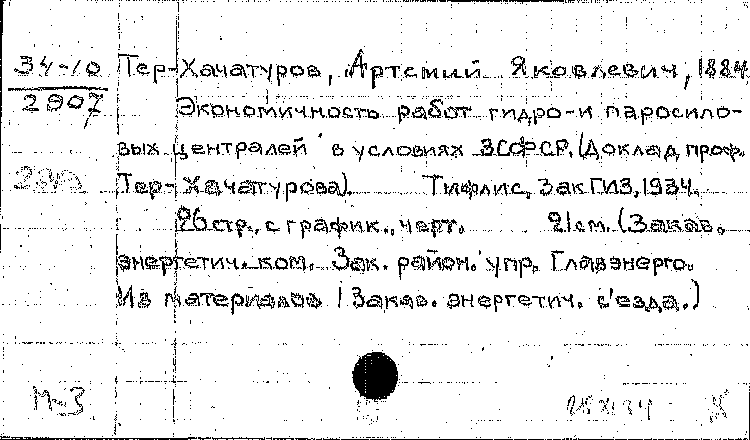 34-10
2907
Тер-Хачатуров, Артемий Яковлевич, 1884.
Экономичность работ гидро- и паросило-
вых централей в условиях ЗСФСР. (Доклад проф.
Тер-Хачатурова). Тифлис, ЗакГИЗ, 1934.
26 стр., с график., черт. 21 см. (Закав.
энергетич. ком. Зак. район. упр. Главэнерго.
Из материалов I Закав. энергетич. с'езда.)
М-3